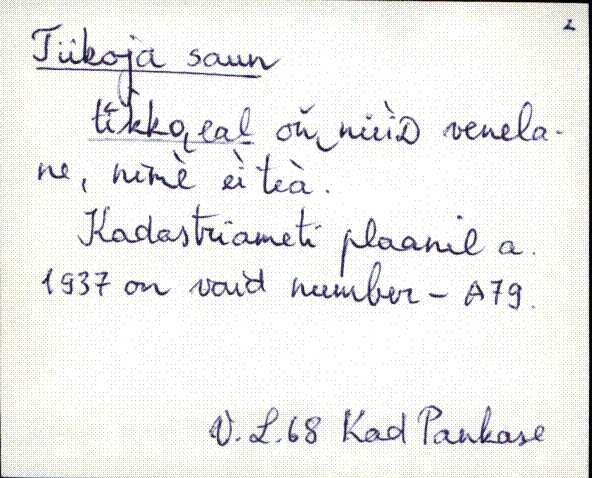 2
Tiikoja saun
tīkkoɪ̯eal on nüìD venela-
ne, nimè ei teà.
Kadastriameti plaanil a.
1937 on vaid number – A79.
V.L.68 Kad Pankase